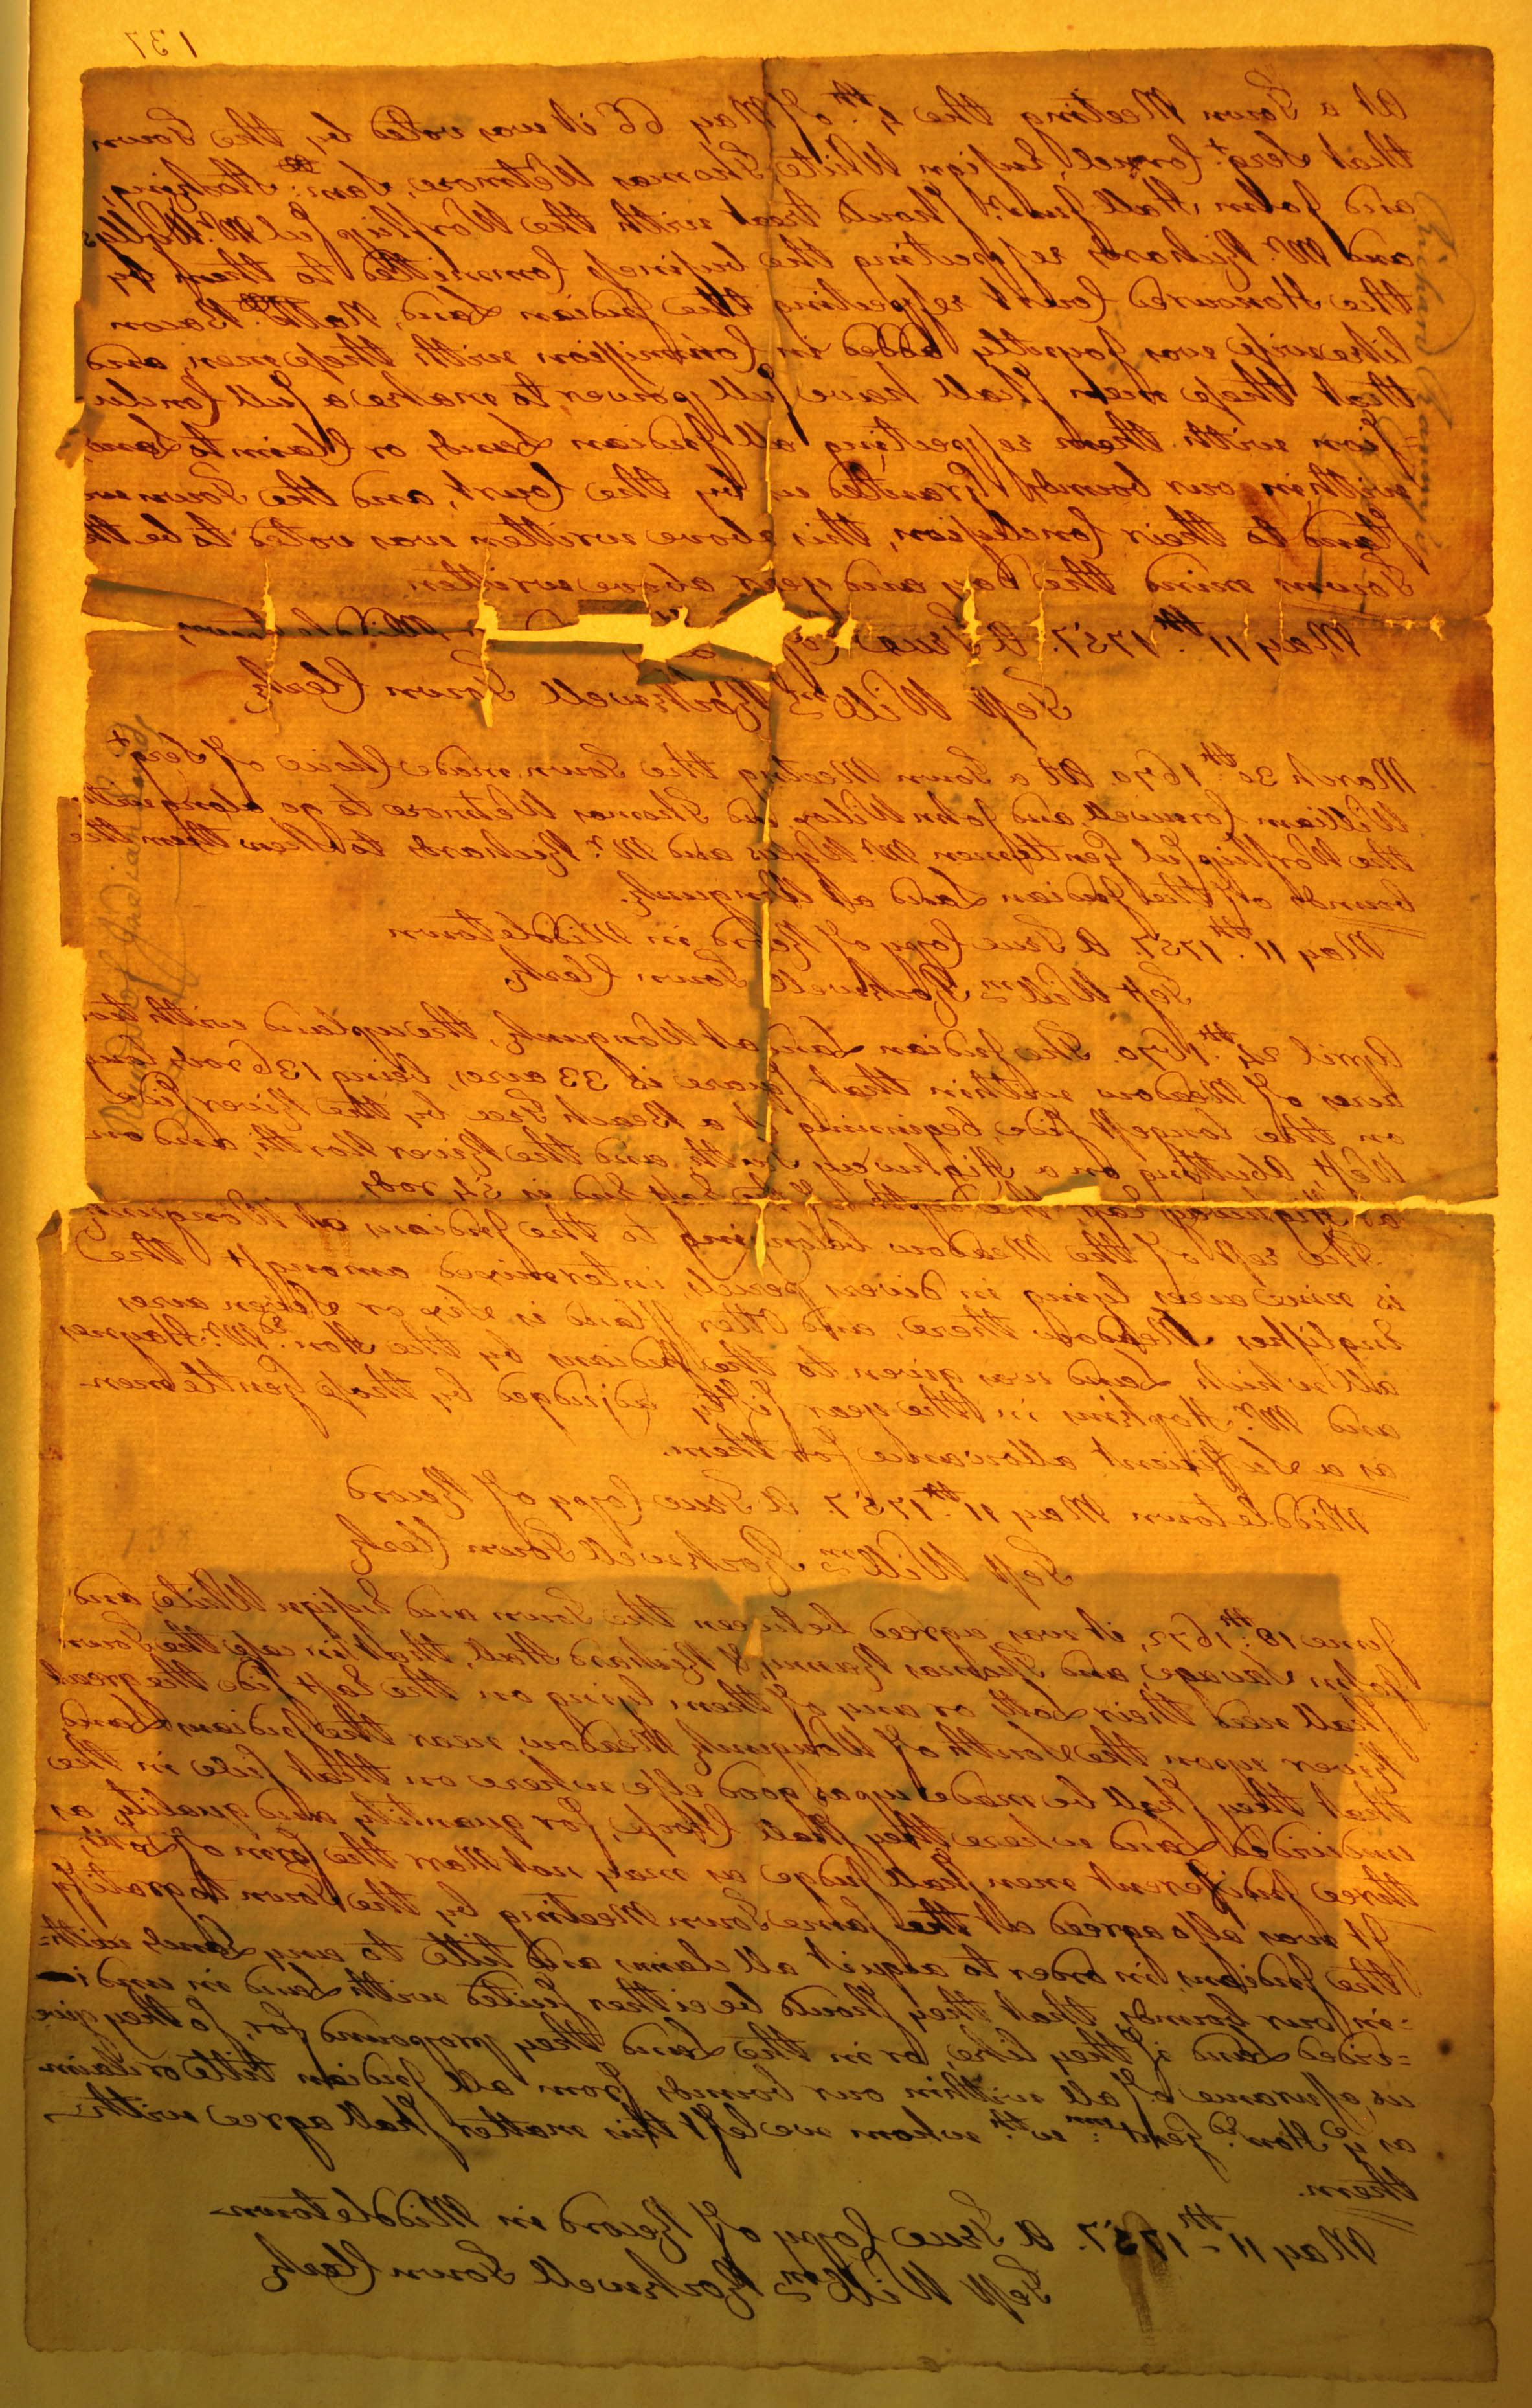 137
At a Town Meeting the 4th. of May 66 it was voted by the Town
that Sergt. Cornel, Ensign White Thomas Wetmore, Saml: Stocking,
and John Hall Junr. shoud treat with the Worshipful Mr. Wyllys
and Mr. Richards respecting the business Committed to them by
the Honoured Court respecting the Indian Land, Nathll. Bacon
likewise was joyntly added in Commission with these men, and
that these men shall have full power to make a full Conclu
sion with them respecting all Indian Lands or Claim to Land
within our bounds Granted us by the Court, and the Town
stand to their Conclusion, this above written was voted to be the
Towns mind the day and year above written
May 11th. 1757. A True Copy Middletown,
Test Willm Rockwell Town Clerk
March 30th. 1670. At a Town Meeting the Town made Choice of Sergt
William Cornwell and John Wilcox and Thomas Wetmore to go along with
the Worshipful Gentlemen Mr. Wyllys and Mr. Richards to shew them the
bounds of the Indian Land at Wongunk.
May 11th. 1757. A True Copy of Record in Middletown
Test Willm Rockwell Town Clerk
April 24th. 1670. The Indian Land at Wongunk, the upland with the
acres of Meadow within that square is 33 acres, being 136 rods long
on the longest side, beginning at a Beach Tree by the River side
West, abutting on a Highway South, and the River North, and on
a Highway East, the East End is 54 rods
The rest of the Meadow belonging to the Indians at Wongunk
is nine acres lying in divers percels, intermixed amongst the
Englishes Meadow there, and Otter Island is six or seven acres
all which Land was given to the Indians by the Hond. Mr. Haynes
and Mr. Hopkins in the year fifty adjudged by those Gentlemen
as a Sufficient allowance for them.
Middletown May 11th. 1757. A True Copy of Record
Test Willm Rockwell Town Clerk
138
June 18th. 1672, it was agreed between the Town and Ensign White, and
John Savage, and Thomas Ranny, & Richard Hall, that in case the Town
shall need their Lotts or any of them lying on the East side the great
River upon the South of Wongunk Meadow, near the Indian Land
that they shall be made up as good elsewhere on that side in the
undivided Land where they shall Chose, for quantity and quality, as
three Indifferent men shall Judge as may not Marr the form of Lotts,
It was also agreed at the same Town Meeting by the Town to gratify
the Indians, in order to acquit all claims and title to any Lands with=
=in our bounds that they shoud be either suited with Land in undi=
=vided Land if they like, or in the Land they propound for, so they give
us assurance of all within our bounds from all Indian title or claim
as ye Honrd. Gentmn. wth. whom we left this matter shall agree with
them.
May 11th- 1757. A True Copy of Record in Middletown
Test Willm Rockwell Town Clerk
Richard Ranny's
Bounds of Indian Land